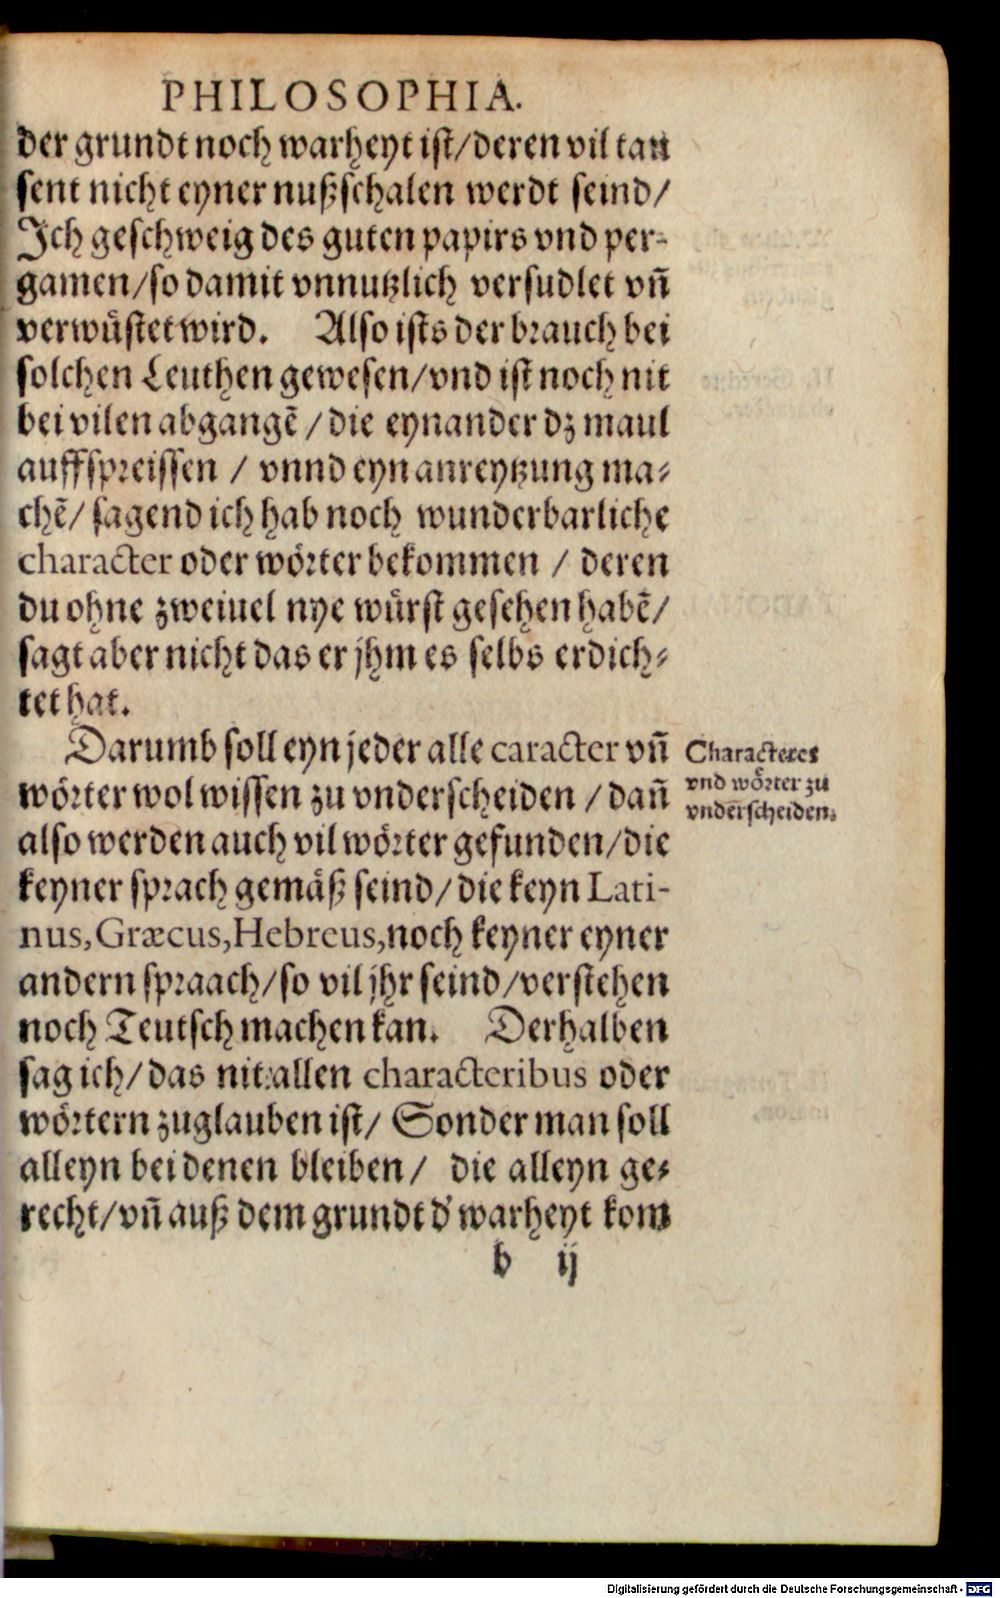 PHILOSOPHIA.
der grundt noch warheyt ist/deren vil tau
sent nicht eyner nußschalen werdt seind/
Ich geschweig des guten papirs vnd per-
gamen/so damit vnnutzlich versudlet vñ
verwůstet wird. Also ists der brauch bei
solchen Leuthen gewesen/vnd ist noch nit
bei vilen abgangẽ/die eynander dz maul
auffspreissen / vnnd eyn anreytzung ma-
chẽ/ sagend ich hab noch wunderbarliche
character oder wörter bekommen / deren
du ohne zweiuel nye würst gesehen habẽ/
sagt aber nicht das er jhm es selbs erdich-
tet hat.
Darumb soll eyn jeder alle caracter vñ
wörter wol wissen zu vnderscheiden / dañ
also werden auch vil wörter gefunden/die
keyner sprach gemäß seind/die keyn Lati-
nus, Græcus, Hebreus, noch keyner eyner
andern spraach/so vil jhr seind/verstehen
noch Teutsch machen kan. Derhalben
sag ich/das nit allen characteribus oder
wörtern zuglauben ist/ Sonder man soll
alleyn bei denen bleiben/ die alleyn ge-
recht/vñ auß dem grundt d' warheyt kom
b ij
Characteres
vnd wörter zu
vnderscheiden.
Digitalisierung gefördert durch die Deutsche Forschungsgemeinschaft - DFG